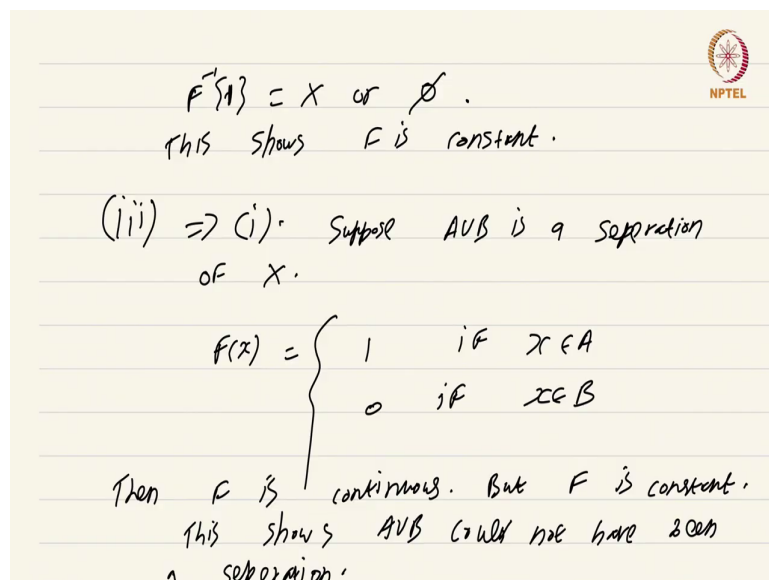 NPTEL
F⁻¹{1} = X or ∅.
This shows F is constant.
(iii) => (i). Suppose A∪B is a seperation
of X.
F(x) = { 1 if x ∈ A
0 if x ∈ B
Then F is continuous. But F is constant.
This shows A∪B could not have been
a seperaion.